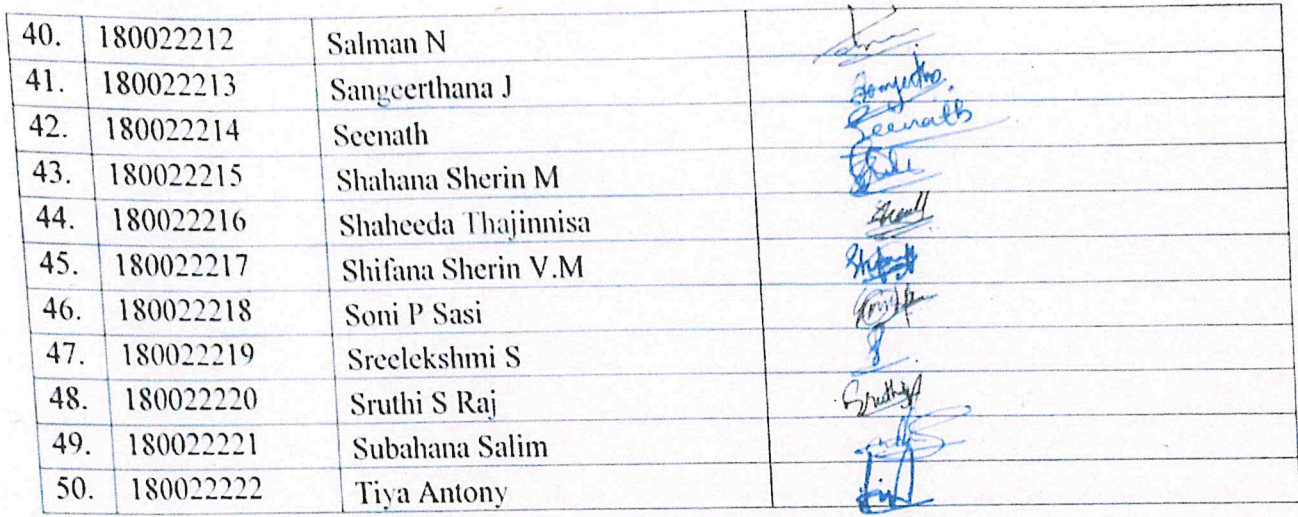 40. 180022212 Salman N
41. 180022213 Sangeerthana J
42. 180022214 Seenath Seenath
43. 180022215 Shahana Sherin M
44. 180022216 Shaheeda Thajinnisa
45. 180022217 Shifana Sherin V.M
46. 180022218 Soni P Sasi
47. 180022219 Sreelekshmi S
48. 180022220 Sruthi S Raj
49. 180022221 Subahana Salim
50. 180022222 Tiya Antony